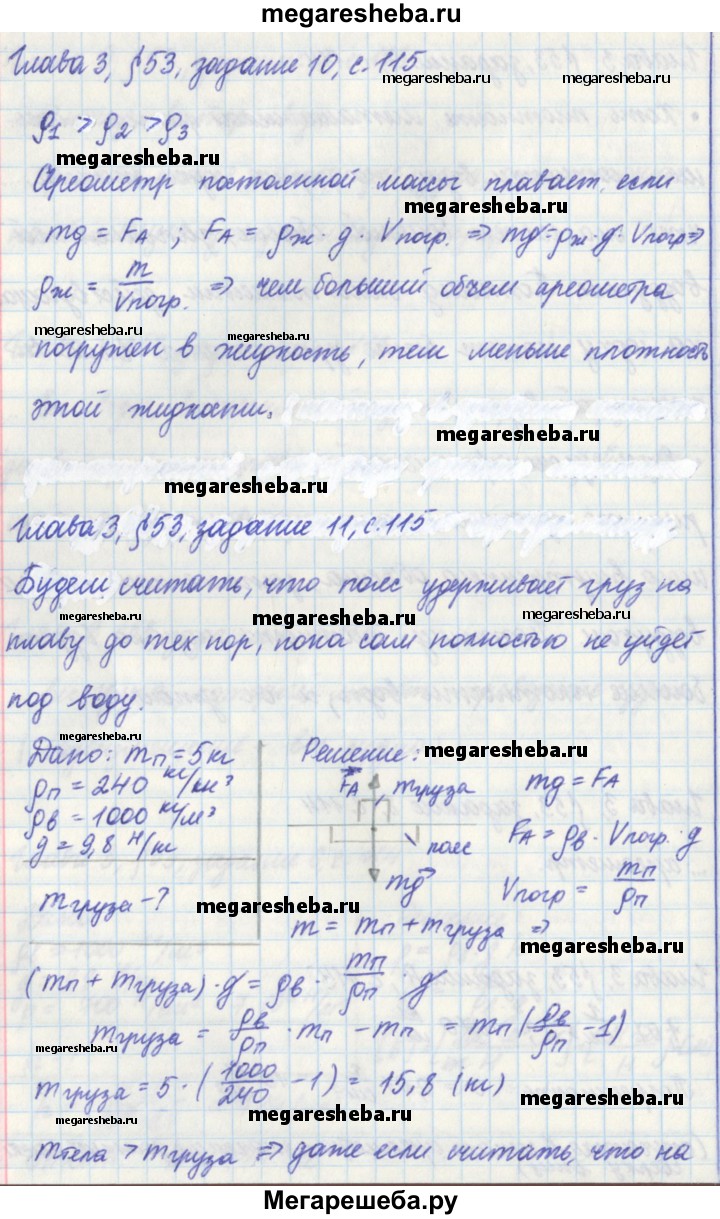 megaresheba.ru
Глава 3, §53, задание 10, с. 115
megaresheba.ru megaresheba.ru
ρ1 > ρ2 > ρ3
megaresheba.ru
Ареометр постоянной массы плавает, если
megaresheba.ru
mg = FA ; FA = ρж · g · Vпогр. ⇒ mg = ρж · g · Vпогр ⇒
ρж = m/Vпогр. ⇒ чем больший объем ареометра
megaresheba.ru megaresheba.ru
погружен в жидкость, тем меньше плотность
megaresheba.ru
этой жидкости.
megaresheba.ru
megaresheba.ru
Глава 3, §53, задание 11, с. 115
Будем считать, что пояс удерживает груз на
megaresheba.ru megaresheba.ru
плаву до тех пор, пока сам полностью не уйдет
под воду.
megaresheba.ru
Дано: mп = 5 кг Решение:
megaresheba.ru
ρп = 240 кг/м³ FА mгруза mg = FA
ρв = 1000 кг/м³
g = 9,8 Н/кг пояс FA = ρв · Vпогр. · g
mg Vпогр = mп/ρп
mгруза - ?
megaresheba.ru
m = mп + mгруза ⇒
megaresheba.ru
(mп + mгруза) · g = ρв · mп/ρп · g
mгруза = ρв/ρп · mп − mп = mп (ρв/ρп − 1)
megaresheba.ru megaresheba.ru
mгруза = 5 · (1000/240 − 1) = 15,8 (кг)
megaresheba.ru megaresheba.ru
mтела > mгруза ⇒ даже если считать, что на
megaresheba.ru
Мегарешеба.ру